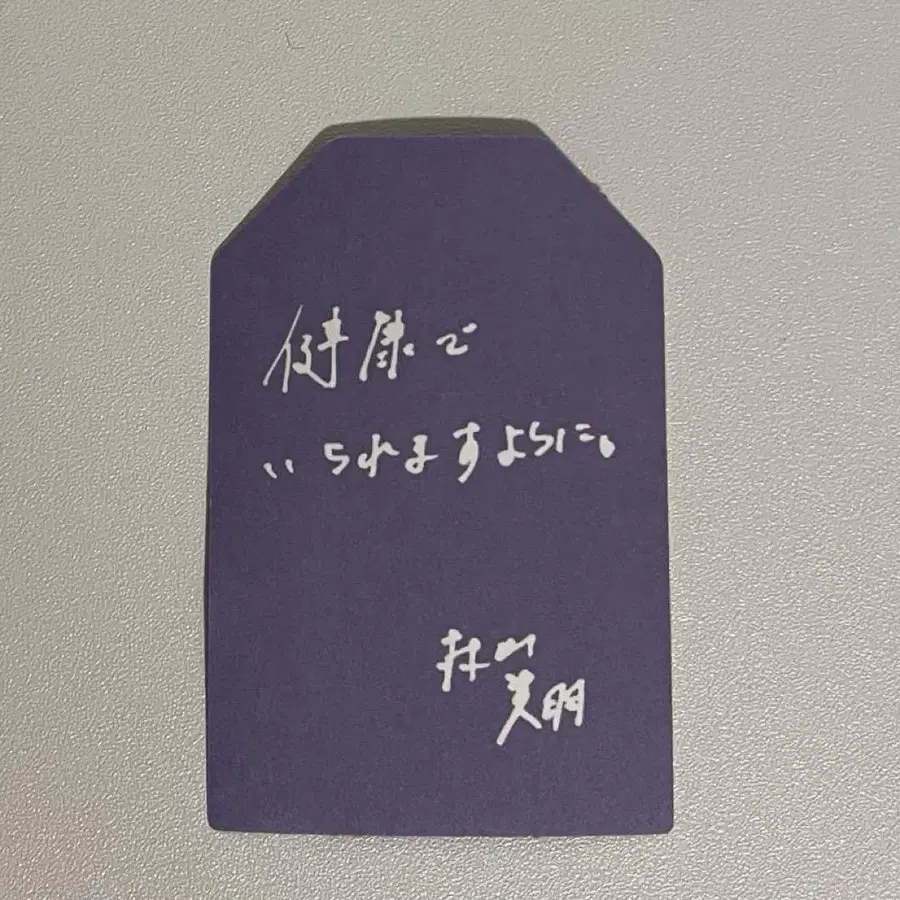 健康で
いられますように。
村山
美羽